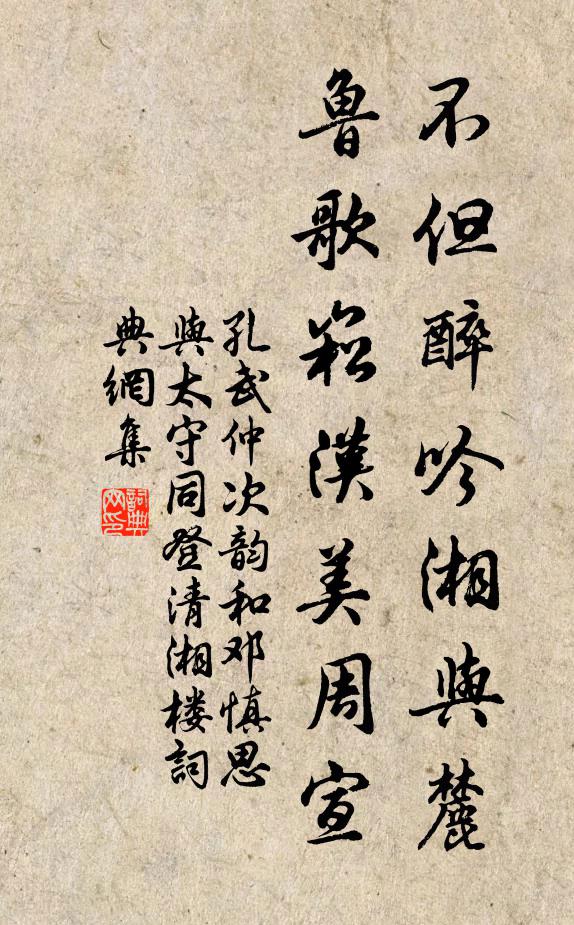 不但醉吟湘與麓
魯歌崧漢美周宣
孔武仲次韵和邓慎思
與太守同登清湘楼詞
典網集
詞典
网印